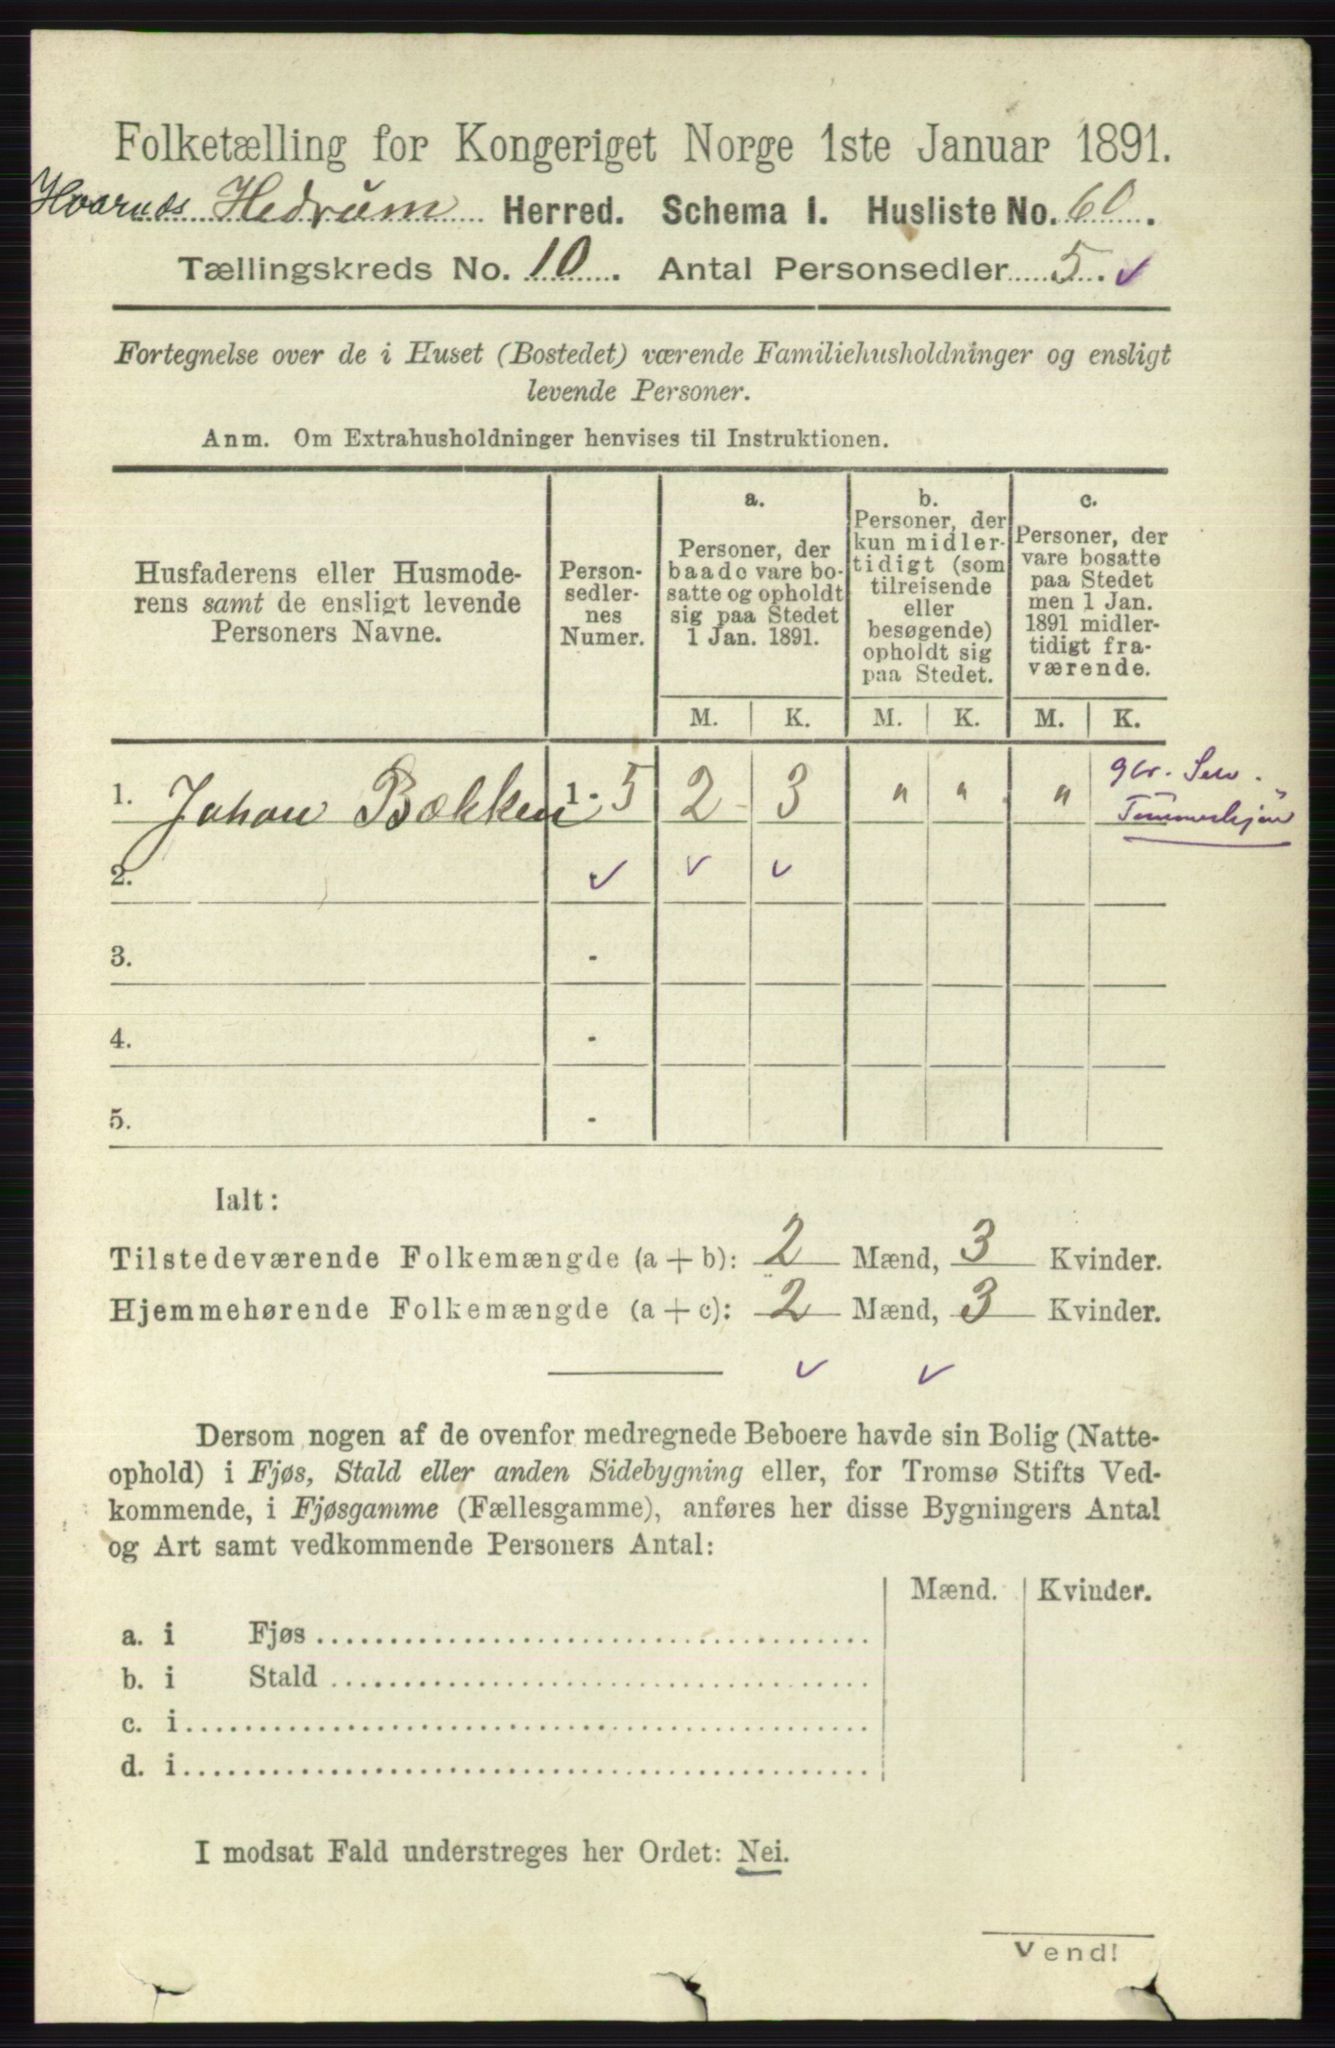 Folketælling for Kongeriget Norge 1ste Januar 1891.
Hvarnes Hedrum Herred. Schema I. Husliste No. 60.
Tællingskreds No. 10. Antal Personsedler 5. ✓
Fortegnelse over de i Huset (Bostedet) værende Familiehusholdninger og ensligt
levende Personer.
Anm. Om Extrahusholdninger henvises til Instruktionen.
Husfaderens eller Husmode-
rens samt de ensligt levende
Personers Navne.
Person-
sedler-
nes
Numer.
a.
Personer, der
baade vare bo-
satte og opholdt
sig paa Stedet
1 Jan. 1891.
b.
Personer, der
kun midler-
tidigt (som
tilreisende
eller
besøgende)
opholdt sig
paa Stedet.
c.
Personer, der
vare bosatte
paa Stedet
men 1 Jan.
1891 midler-
tidigt fra-
værende.
M. K. M. K. M. K.
1. Johan Bækken 1-5 2 3 " " "
2. ✓ ✓ ✓
3. -
4. -
5. -
Ialt:
Tilstedeværende Folkemængde (a + b): 2 Mænd, 3 Kvinder.
Hjemmehørende Folkemængde (a + c): 2 Mænd, 3 Kvinder.
✓ ✓
Dersom nogen af de ovenfor medregnede Beboere havde sin Bolig (Natte-
ophold) i Fjøs, Stald eller anden Sidebygning eller, for Tromsø Stifts Ved-
kommende, i Fjøsgamme (Fællesgamme), anføres her disse Bygningers Antal
og Art samt vedkommende Personers Antal:
Mænd. Kvinder.
a. i Fjøs
b. i Stald
c. i
d. i
I modsat Fald understreges her Ordet: Nei.
Vend!